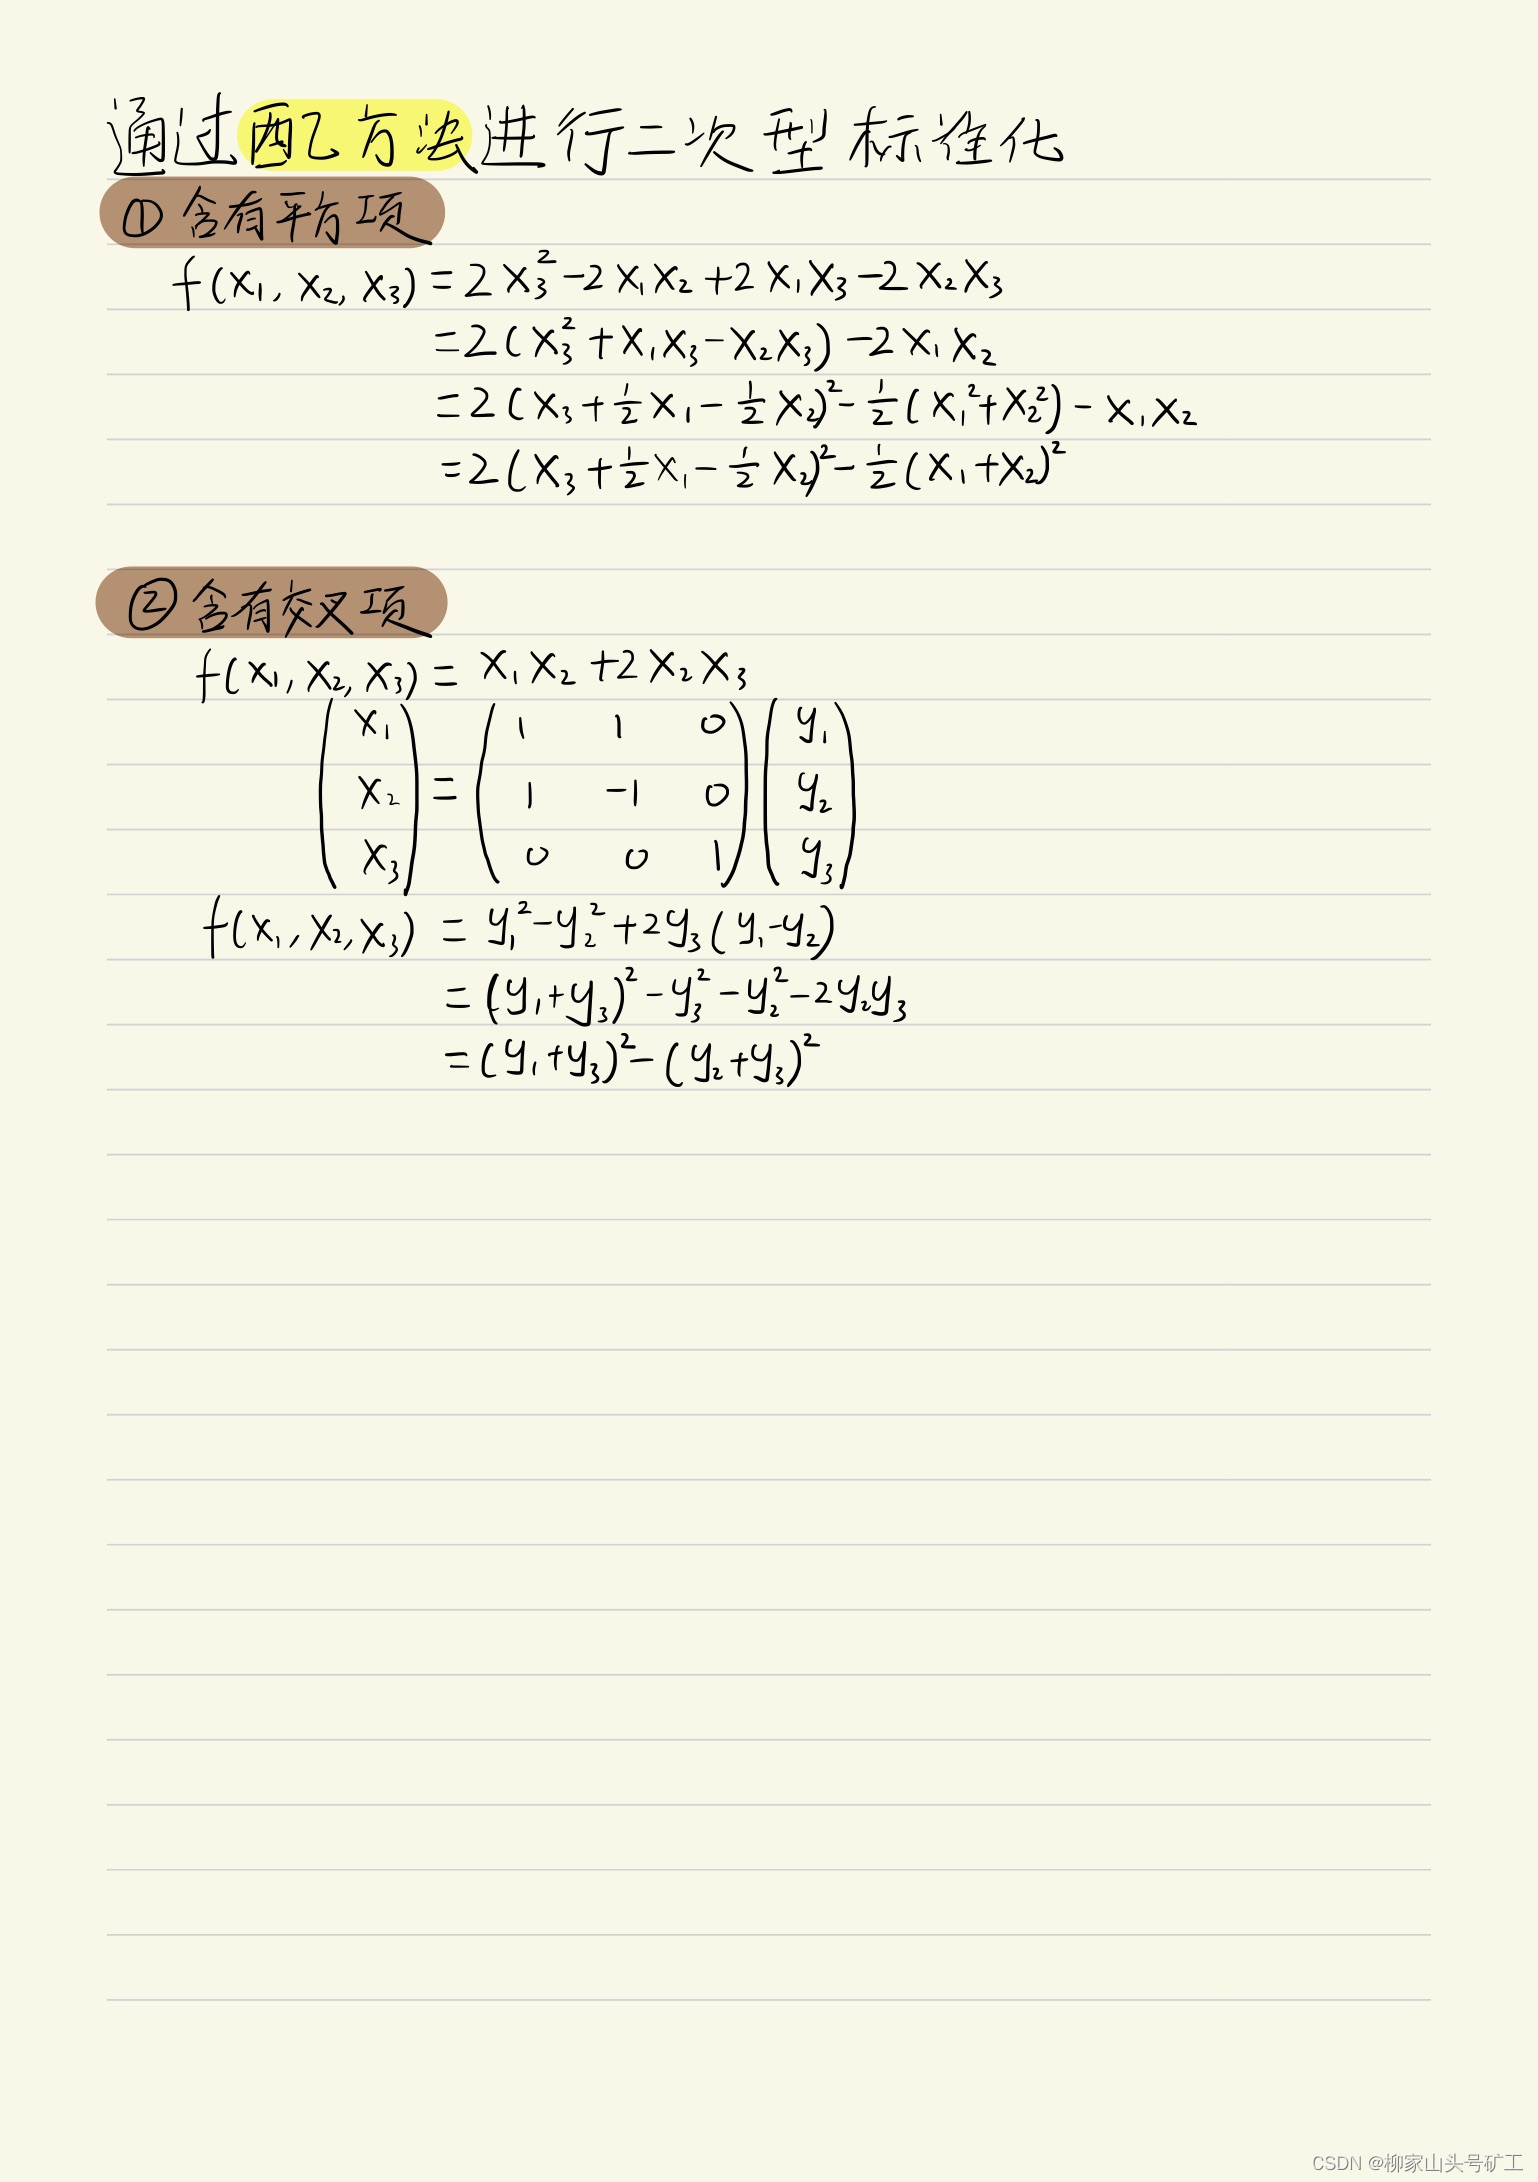 通过配方法进行二次型标准化
① 含有平方项
f(x₁, x₂, x₃) = 2x₃² - 2x₁x₂ + 2x₁x₃ - 2x₂x₃
= 2(x₃² + x₁x₃ - x₂x₃) - 2x₁x₂
= 2(x₃ + ½x₁ - ½x₂)² - ½(x₁² + x₂²) - x₁x₂
= 2(x₃ + ½x₁ - ½x₂)² - ½(x₁ + x₂)²
② 含有交叉项
f(x₁, x₂, x₃) = x₁x₂ + 2x₂x₃
(x₁) = (1 1 0) (y₁)
(x₂) = (1 -1 0) (y₂)
(x₃) = (0 0 1) (y₃)
f(x₁, x₂, x₃) = y₁² - y₂² + 2y₃(y₁ - y₂)
= (y₁ + y₃)² - y₃² - y₂² - 2y₂y₃
= (y₁ + y₃)² - (y₂ + y₃)²
CSDN @柳家山头号矿工